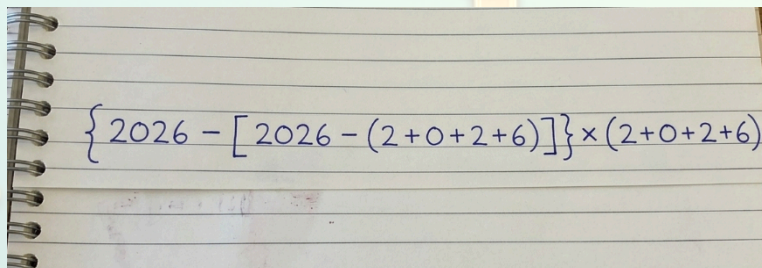 {2026-[2026-(2+0+2+6)]}×(2+0+2+6)